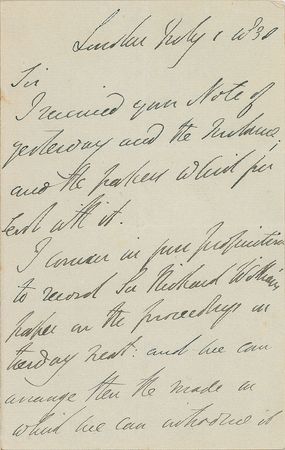 London July 1 1830
Sir
I received your Note of
yesterday and the
and the papers which you
sent with it.
I concur in your proposition
to record Sir Richard Williams
paper on the proceedings on
next: and we can
arrange then the mode in
which we can introduce it